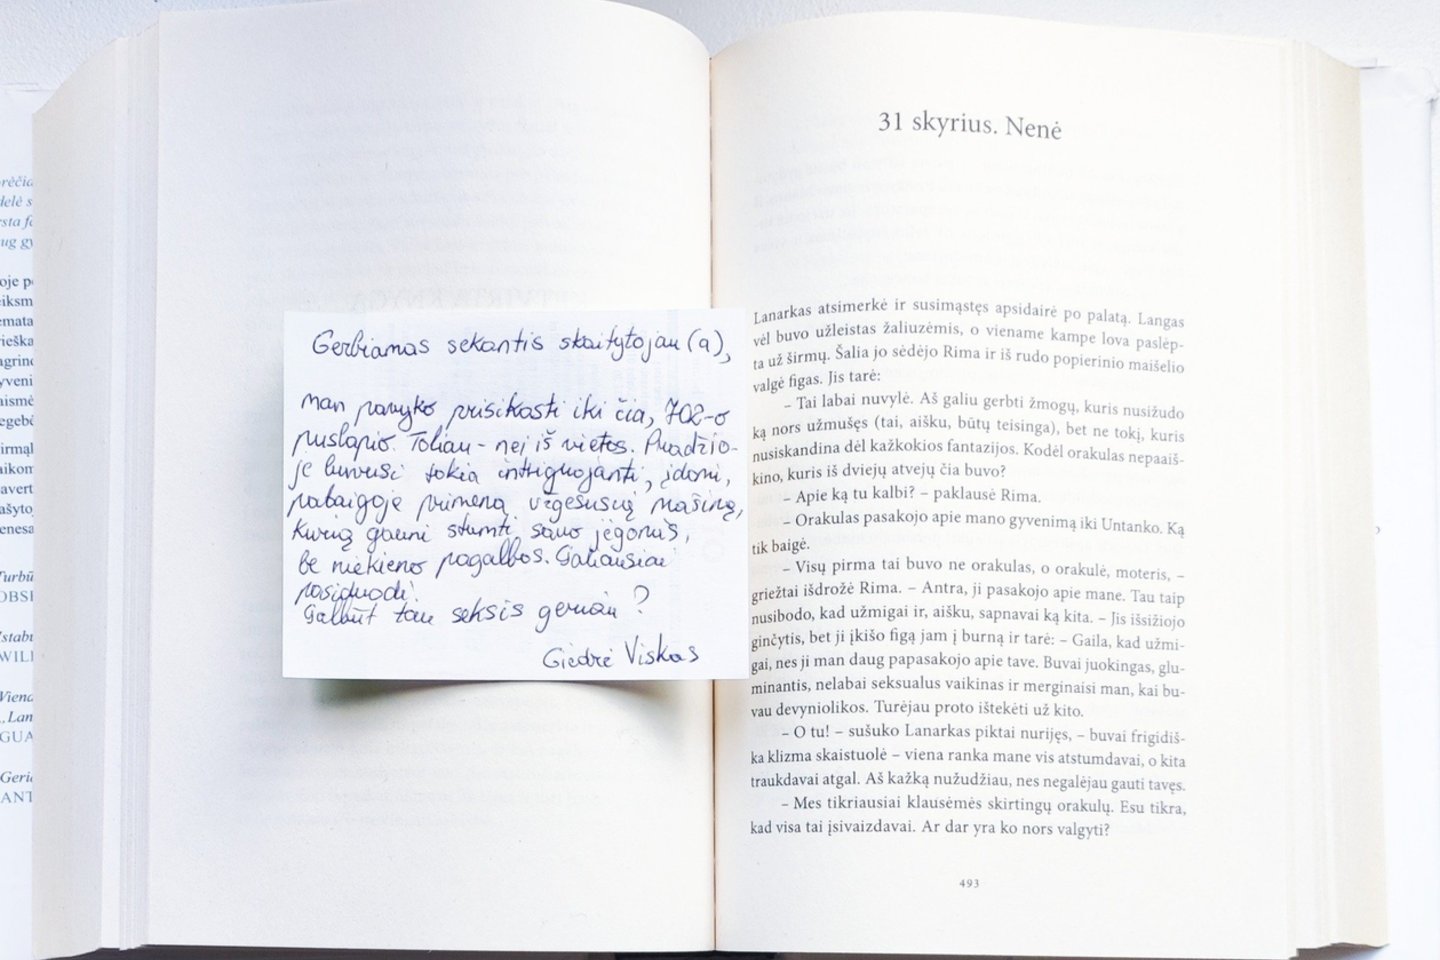 ug gy
oje p
eiksm
emata
rieška
agrin
yveni
aismė
egebė
irmąl
aikom
avert
ašyto
enesa
Turbū
OBSE
Istabu
WILI
Viena
„Lan
GUA
Geric
ANT
Gerbiamas sekantis skaitytojau (a),
Man pavyko prisikasti iki čia, 702-o
puslapio. Toliau - nei iš vietos. Pradžio-
je buvusi tokia intriguojanti, įdomi,
pabaigoje primena užgesusią mašiną,
kurią gauni stumti savo jėgomis,
be niekieno pagalbos. Galiausiai
pasiduodi.
Galbūt tau seksis geriau?
Giedrė Viskas
31 skyrius. Nenė
Lanarkas atsimerkė ir susimąstęs apsidairė po palatą. Langas
vėl buvo užleistas žaliuzėmis, o viename kampe lova paslėp-
ta už širmų. Šalia jo sėdėjo Rima ir iš rudo popierinio maišelio
valgė figas. Jis tarė:
– Tai labai nuvylė. Aš galiu gerbti žmogų, kuris nusižudo
ką nors užmušęs (tai, aišku, būtų teisinga), bet ne tokį, kuris
nusiskandina dėl kažkokios fantazijos. Kodėl orakulas nepaaiš-
kino, kuris iš dviejų atvejų čia buvo?
– Apie ką tu kalbi? – paklausė Rima.
– Orakulas pasakojo apie mano gyvenimą iki Untanko. Ką
tik baigė.
– Visų pirma tai buvo ne orakulas, o orakulė, moteris, –
griežtai išdrožė Rima. – Antra, ji pasakojo apie mane. Tau taip
nusibodo, kad užmigai ir, aišku, sapnavai ką kita. – Jis išsižiojo
ginčytis, bet ji įkišo figą jam į burną ir tarė: – Gaila, kad užmi-
gai, nes ji man daug papasakojo apie tave. Buvai juokingas, glu-
minantis, nelabai seksualus vaikinas ir merginaisi man, kai bu-
vau devyniolikos. Turėjau proto ištekėti už kito.
– O tu! – sušuko Lanarkas piktai nurijęs, – buvai frigidiš-
ka klizma skaistuolė – viena ranka mane vis atstumdavai, o kita
traukdavai atgal. Aš kažką nužudžiau, nes negalėjau gauti tavęs.
– Mes tikriausiai klausėmės skirtingų orakulų. Esu tikra,
kad visa tai įsivaizdavai. Ar dar yra ko nors valgyti?
493